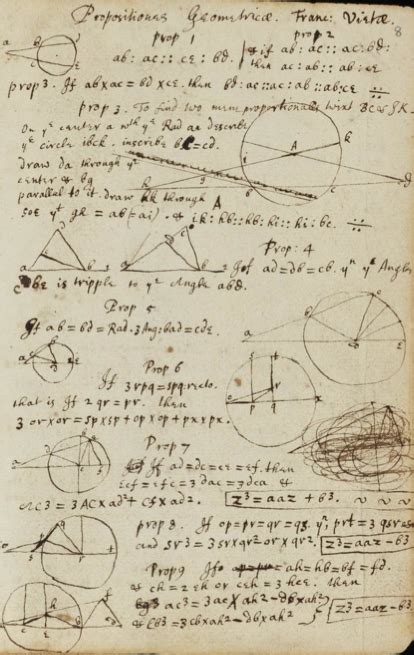 Propositiones Geometricæ. Franc: Vietæ.
8
prop 1
ab: ac:: ce: bd.
prop 2
& if ab: ac:: ac: bd:
then ac: ab:: ab: ce
prop 3. If ab x ac = bd x ce. then bd: ac :: ac: ab :: ab: ce
prop 3. To find two meane proportionals twixt BC &
On ye center a wth ye Rad an describe
ye circle ibck. inscribe bc = cd.
draw da through ye
center & bg
parallel to it. draw hk through A
soe yt gh = ab = ai) . & ik: hb :: hb: hi :: hi: bc.
Prop: 4
If ad = db = cb. yn ye Angle
dbe is tripple to ye Angle abd.
Prop 5
If ab = bd = Rad. 3 Ang: bad = cde.
Prop 6
If 3 rpq = spq: recto.
that is If 2 qr = pr. then
3 or x or = sp x sp + op x op + px x px.
Prop 7
If ad = dc = ce = ef. then
ecf = efc = 3 dac = 3 dca &
ac3 = 3 AC x ad2 + cf x ad2. z3 = aaz + b3.
prop 8. If op = pr = qr = qs. yn prt = 3 qsr
and sr3 = 3 sr x qr2 or x qr2. z3 = aaz - b3
Prop 9 If ah = hb = bf = fd.
& ch = 2 eh or ceh = 3 hce. then
ac3 = 3 ac x ah2 - db x ah2
& cb3 = 3 cb x ah2 - db x ah2 z3 = aaz - b3